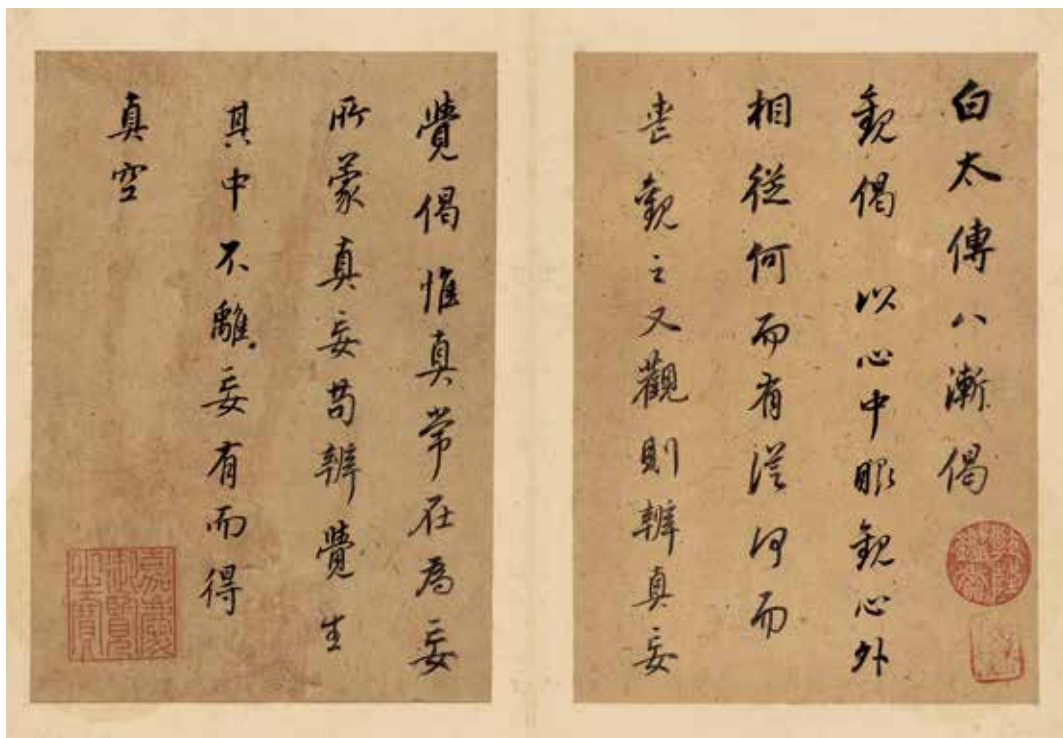 白太傅八漸偈
觀偈 以心中眼觀心外
相從何而有從何而
喪觀之又觀則辨真妄
乾隆鑑賞
覺偈惟真常在為妄
所蒙真妄苟辨覺生
其中不離妄有而得
真空
嘉慶御覽之寶